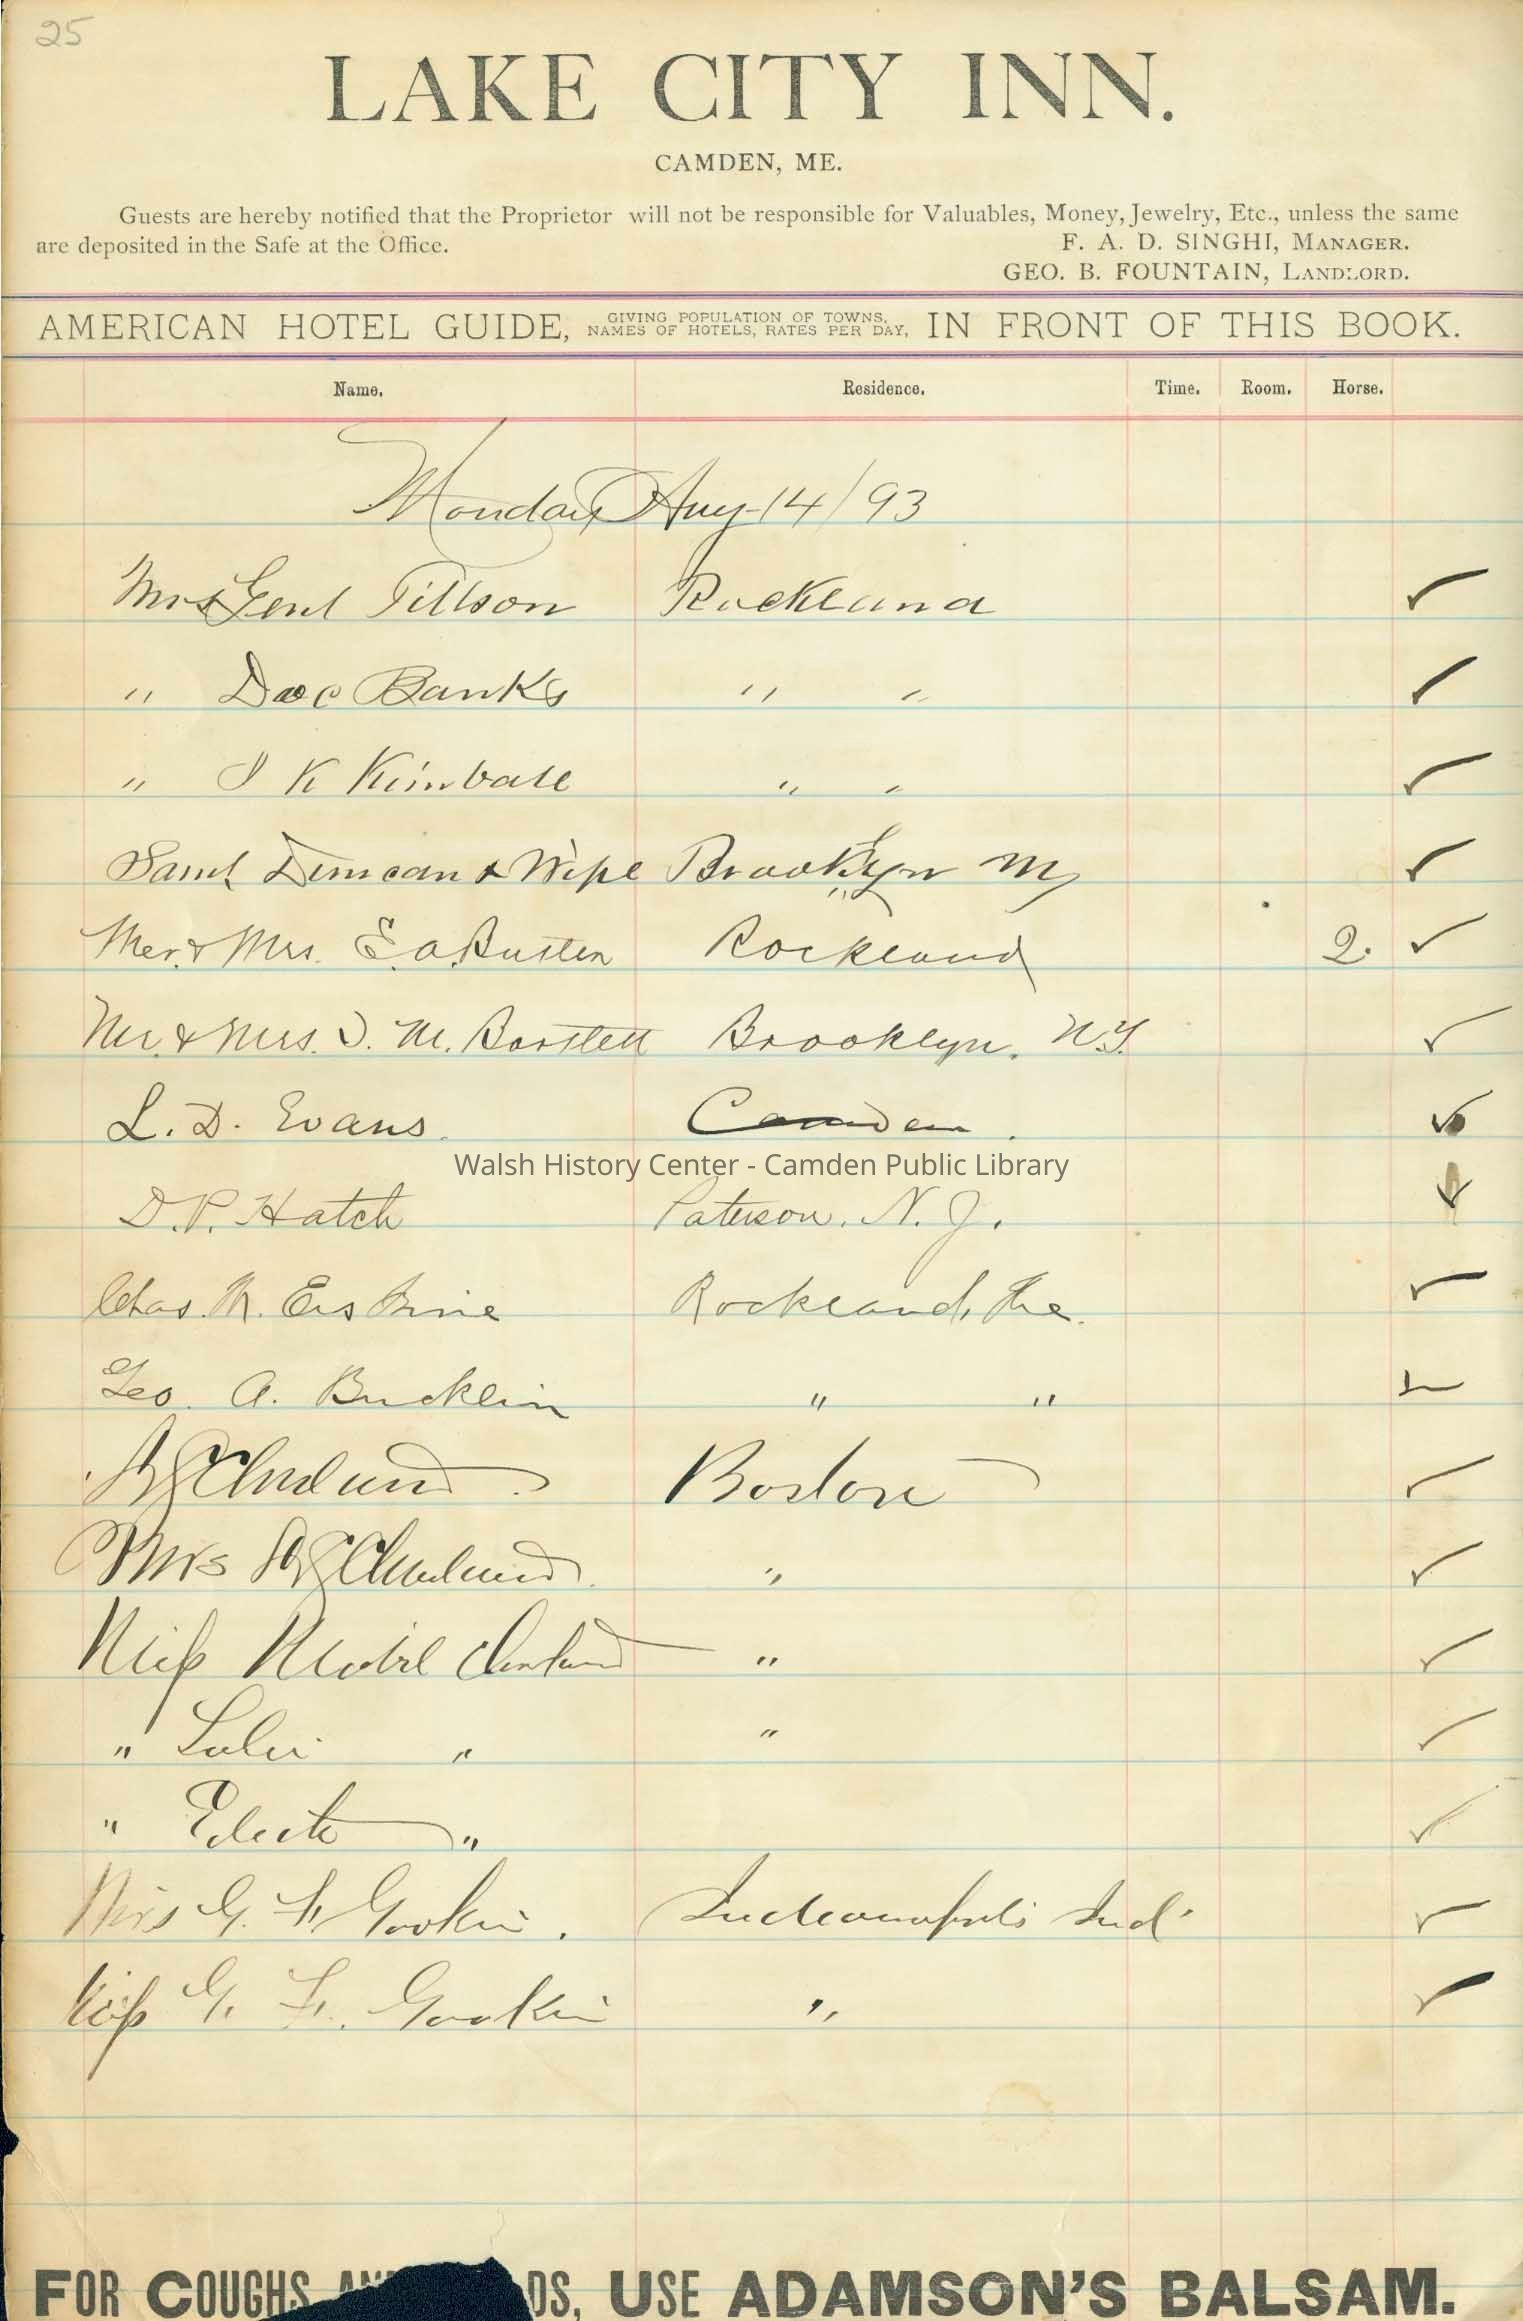 25
LAKE CITY INN.
CAMDEN, ME.
Guests are hereby notified that the Proprietor will not be responsible for Valuables, Money, Jewelry, Etc., unless the same
are deposited in the Safe at the Office.
F. A. D. SINGHI, MANAGER.
GEO. B. FOUNTAIN, LANDLORD.
AMERICAN HOTEL GUIDE, GIVING POPULATION OF TOWNS, NAMES OF HOTELS, RATES PER DAY, IN FRONT OF THIS BOOK.
Name. Residence. Time. Room. Horse.
Monday Aug 14/93
Mrs Genl Tillson Rockland
" Doc Banks " "
" K Kimball " "
Saml Duncan & Wife Brooklyn
Mr. & Mrs. E. A. Rockland 2.
Mr. & Mrs. J. M. Bartlett Brooklyn. N.Y.
L. D. Evans. Camden.
Walsh History Center - Camden Public Library
D. P. Hatch Paterson. N. J.
Chas. M. Erskine Rockland, Me.
Geo. A. Bucklin " "
Boston
Mrs "
Miss "
" " "
" "
Mrs G. F. Gookin. Indianapolis Ind.
Miss G. F. Gookin "
FOR COUGHS AND DS, USE ADAMSON'S BALSAM.